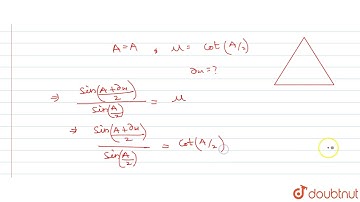 A=A , μ = cot(A/2)
∂u=?
⇒ sin(A+∂u/2)/sin(A/2) = μ
⇒ sin(A+∂u/2)/sin(A/2) = cot(A/2)
doubtnut